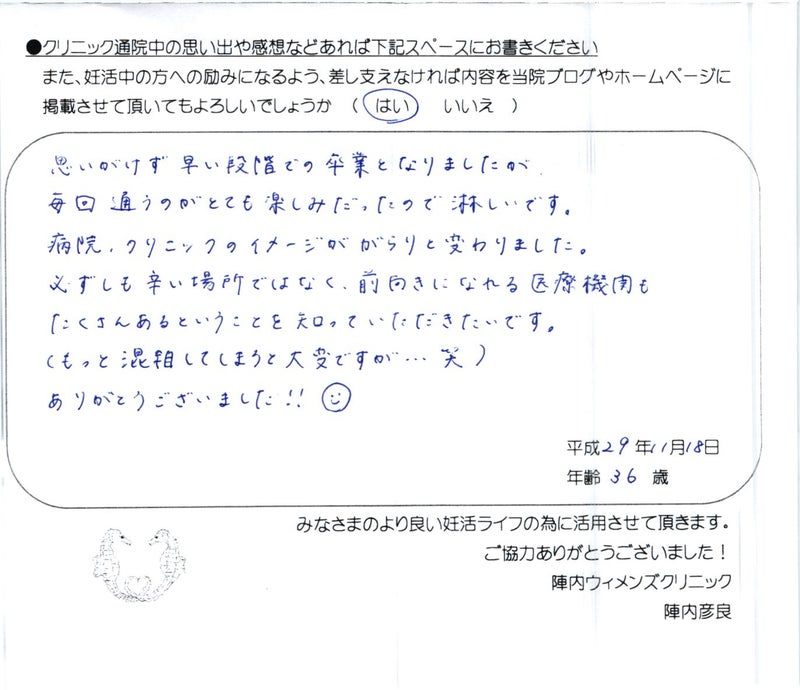 ●クリニック通院中の思い出や感想などあれば下記スペースにお書きください
また、妊活中の方への励みになるよう、差し支えなければ内容を当院ブログやホームページに
掲載させて頂いてもよろしいでしょうか （ はい いいえ ）
思いがけず 早い段階での卒業となりましたが、
毎回 通うのがとても楽しみだったので 淋しいです。
病院、クリニックのイメージが がらりと変わりました。
必ずしも辛い場所ではなく、前向きになれる医療機関も
たくさんあるということを知っていただきたいです。
（もっと混雑してしまうと大変ですが… 笑）
ありがとうございました!!
平成29年11月18日
年齢 36 歳
みなさまのより良い妊活ライフの為に活用させて頂きます。
ご協力ありがとうございました！
陣内ウィメンズクリニック
陣内彦良